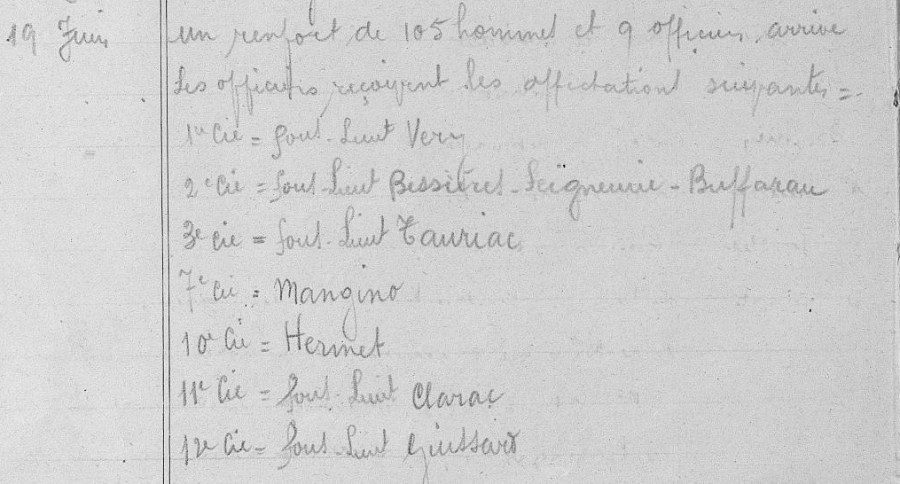 19 Juin un renfort de 105 hommes et 9 officiers arrive
Les officiers reçoivent les affectations suivantes =
1re Cie = Sous-Lieut Very
2e Cie = Sous-Lieut Bessières - Seigneurie - Buffarau
3e Cie = Sous-Lieut Tauriac
7e Cie = Mangino
10e Cie = Hermet
11e Cie = Sous-Lieut Clarac
12e Cie = Sous-Lieut Guissard